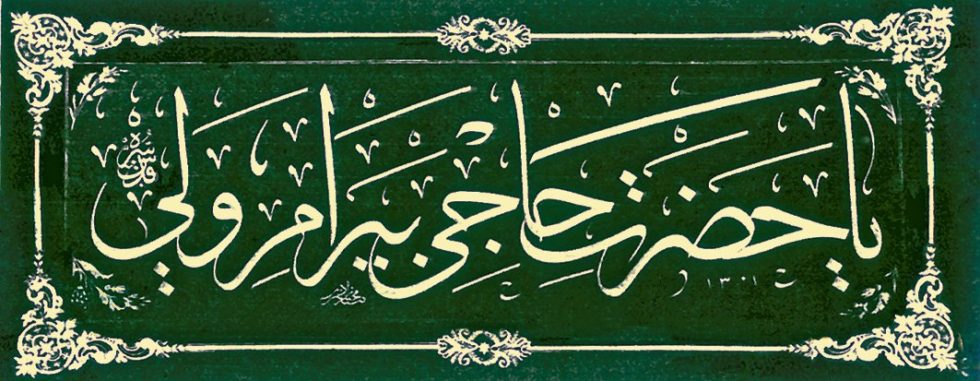 يا حضرت حاجی بيرام ولي قدس سره
١٣٠١